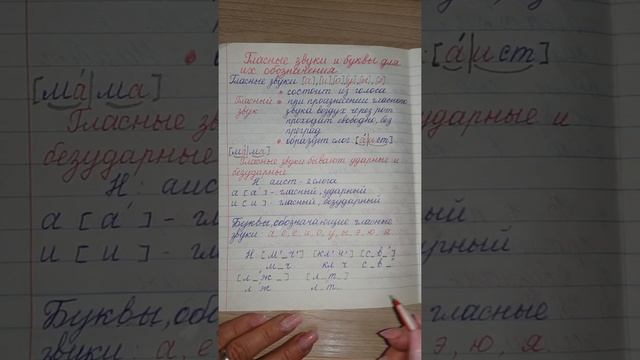 Гласные звуки и буквы для
их обозначения.
Гласные звуки [а], [и], [о], [у], [ы], [э].
• состоит из голоса
Гласный • при произнесении гласного
звук звука воздух через рот
проходит свободно, без
преград
• образует слог [а́|ист]
[ма́|ма]
Гласные звуки бывают ударные и
безударные.
Н: аист - 2 слога
а [а́] - гласный, ударный
и [и] - гласный, безударный
Буквы, обозначающие гласные
звуки: а, о, е, и, о, у, ы, э, ю, я.
Н [м'_ч'] [кл'_ч'] [с_в_']
м_ч кл_ч с_в_
[л_ж_] [л_т_]
л_ж_ л_т_